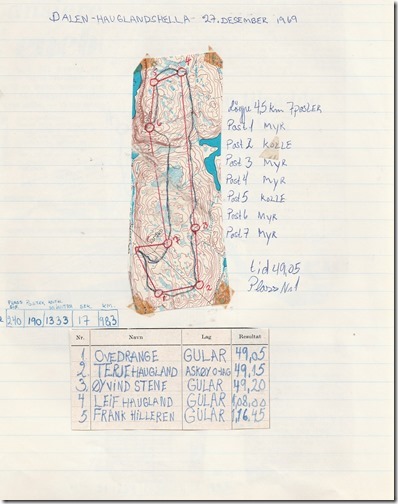 DALEN-HAUGLANDSHELLA- 27. DESEMBER 1969
løype 4,5 km 7 poster
Post 1 MYR
Post 2 KOLLE
Post 3 MYR
Post 4 MYR
Post 5 KOLLE
Post 6 MYR
Post 7 MYR
tid 49,05
Plass Nr 1
SEK. KM.
240 190 1333 17 983
Nr. Navn Lag Resultat
1 OVEDRANGE GULAR 49,05
2 TERJE HAUGLAND ASKØY 49,15
3 ØYVIND STENE GULAR 49,20
4 LEIF HAUGLAND GULAR 1,08,00
5 FRANK HILLEREN GULAR 1,16,45